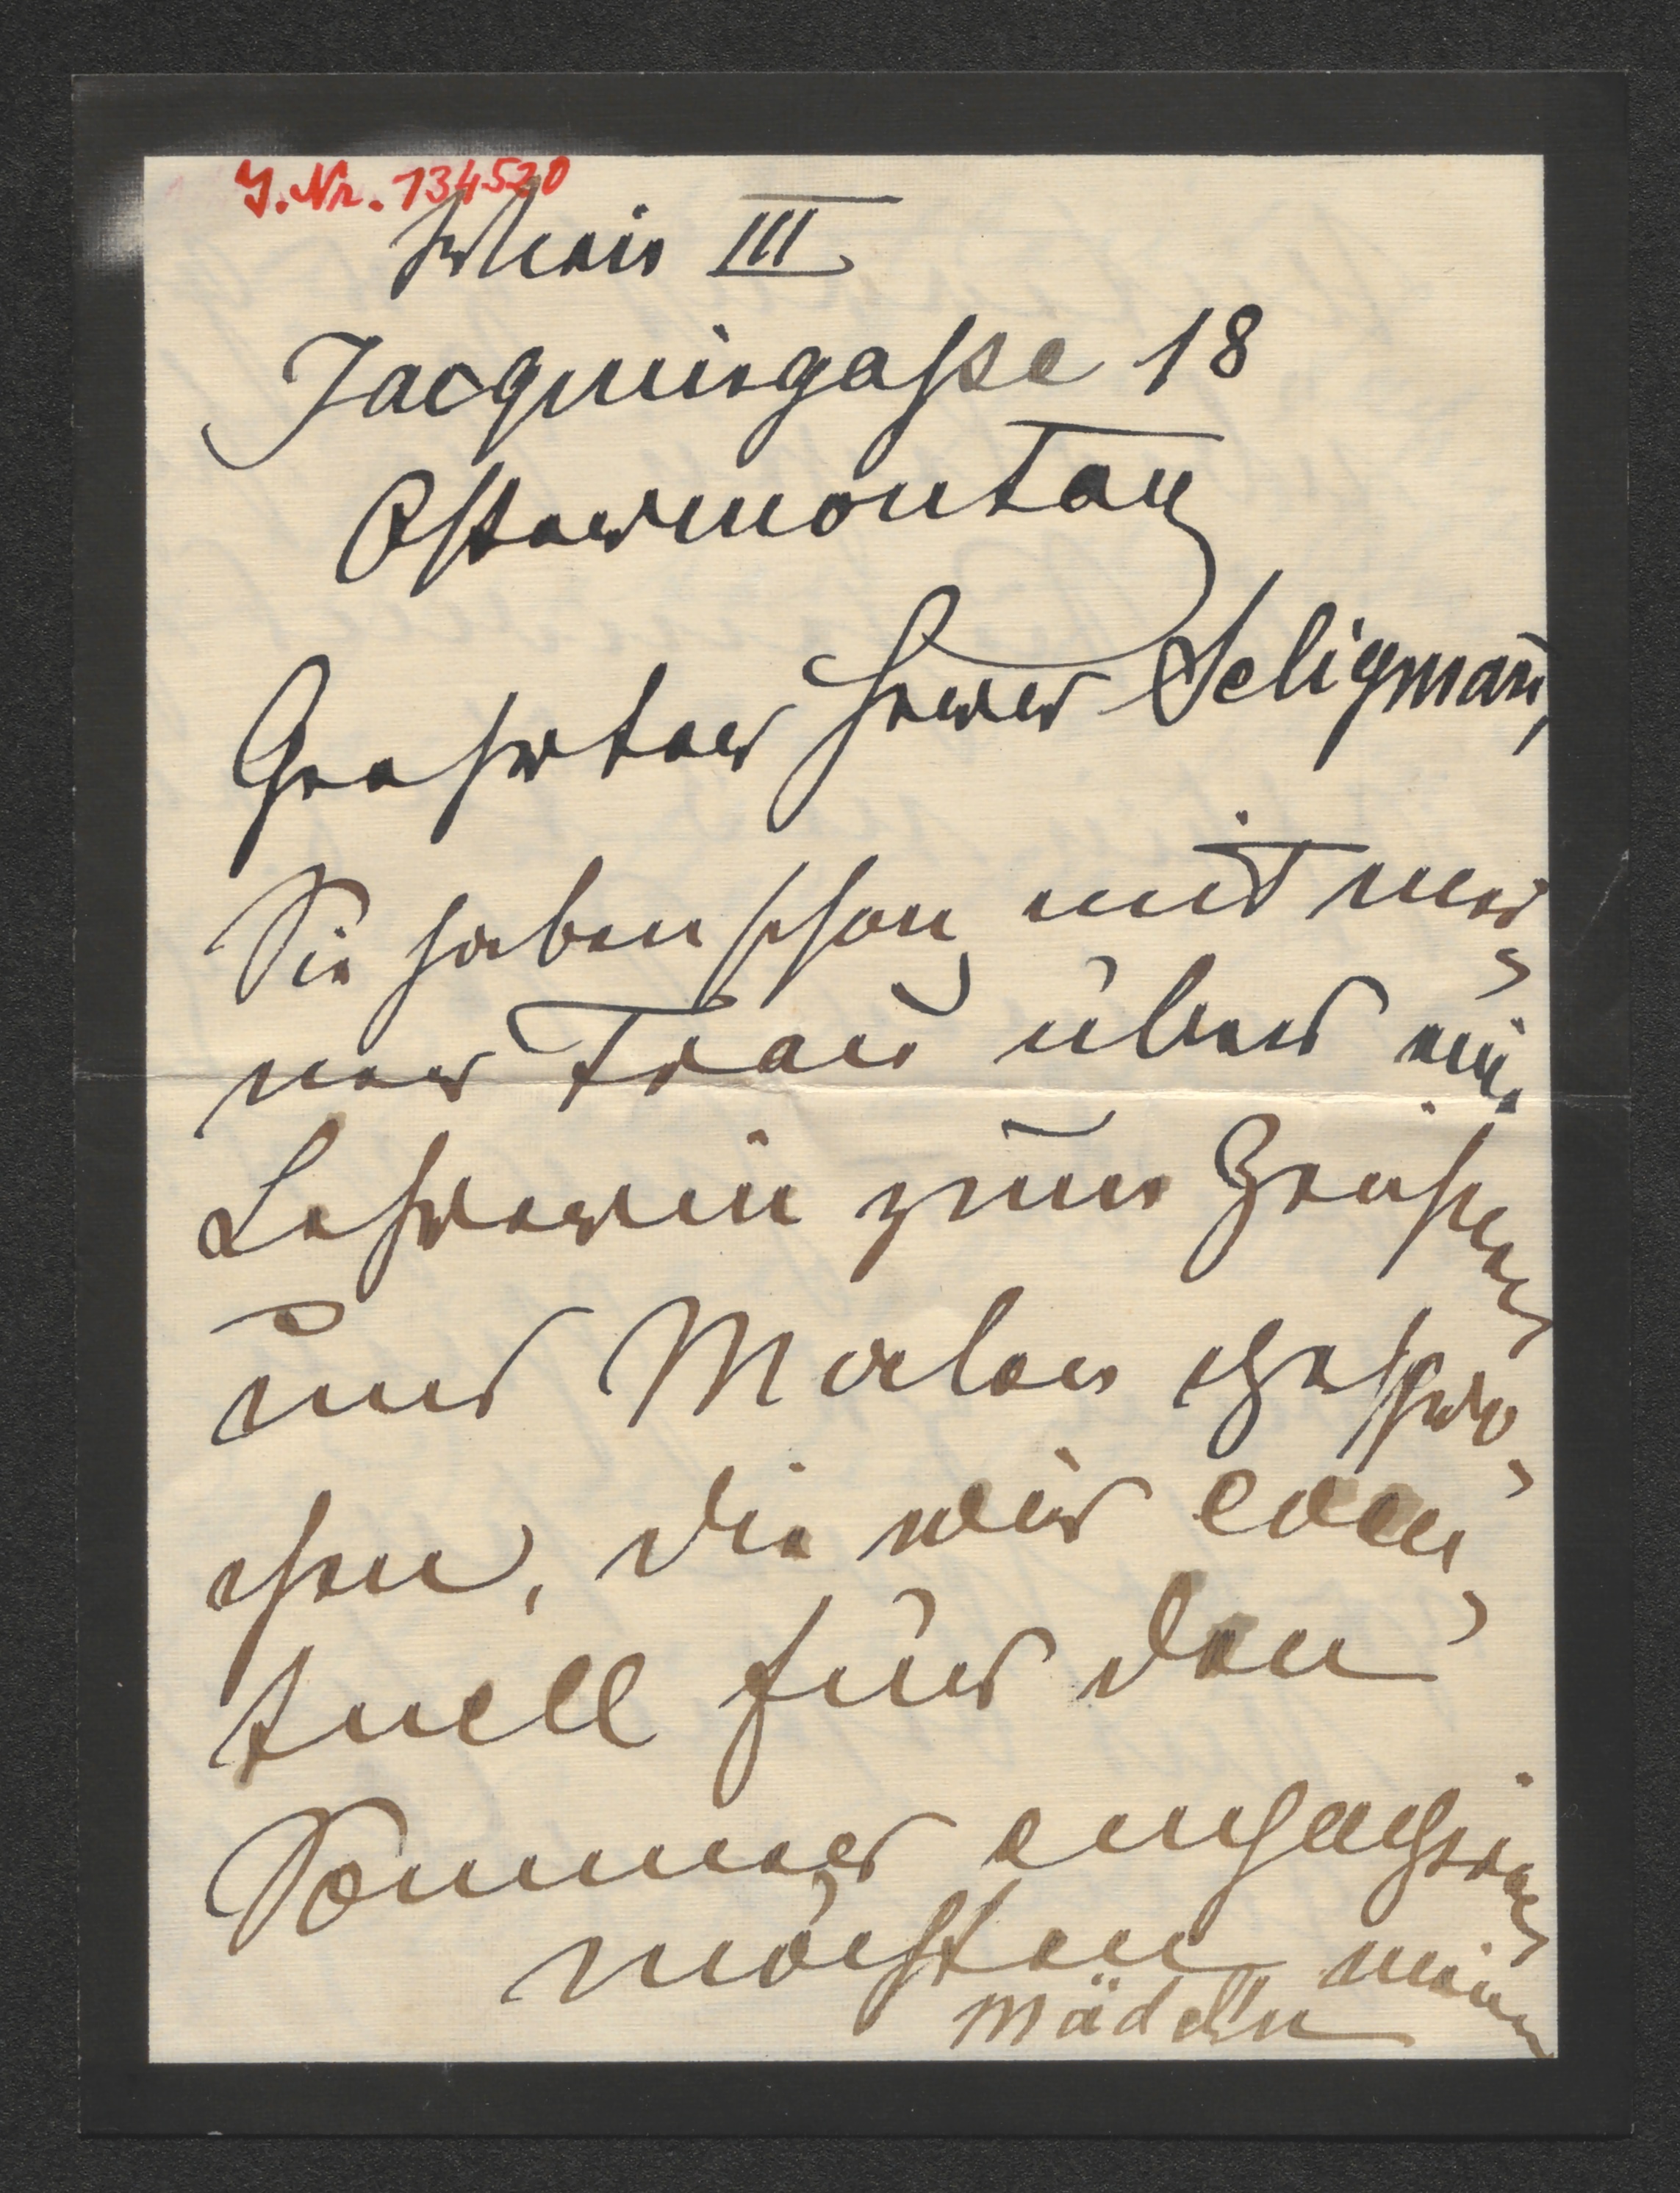 J.Nr. 134520
Wien III
Jacquingasse 18
Ostermontag
Geehrter Herr Seligmañ,
Sie haben schon mit mei-
ner Frau über eine
Lehrerin zum Zeichnen
und Malen gespro-
chen, die wir even-
tuell für den
Sommer engagieren
möchten meinen
Mädeln